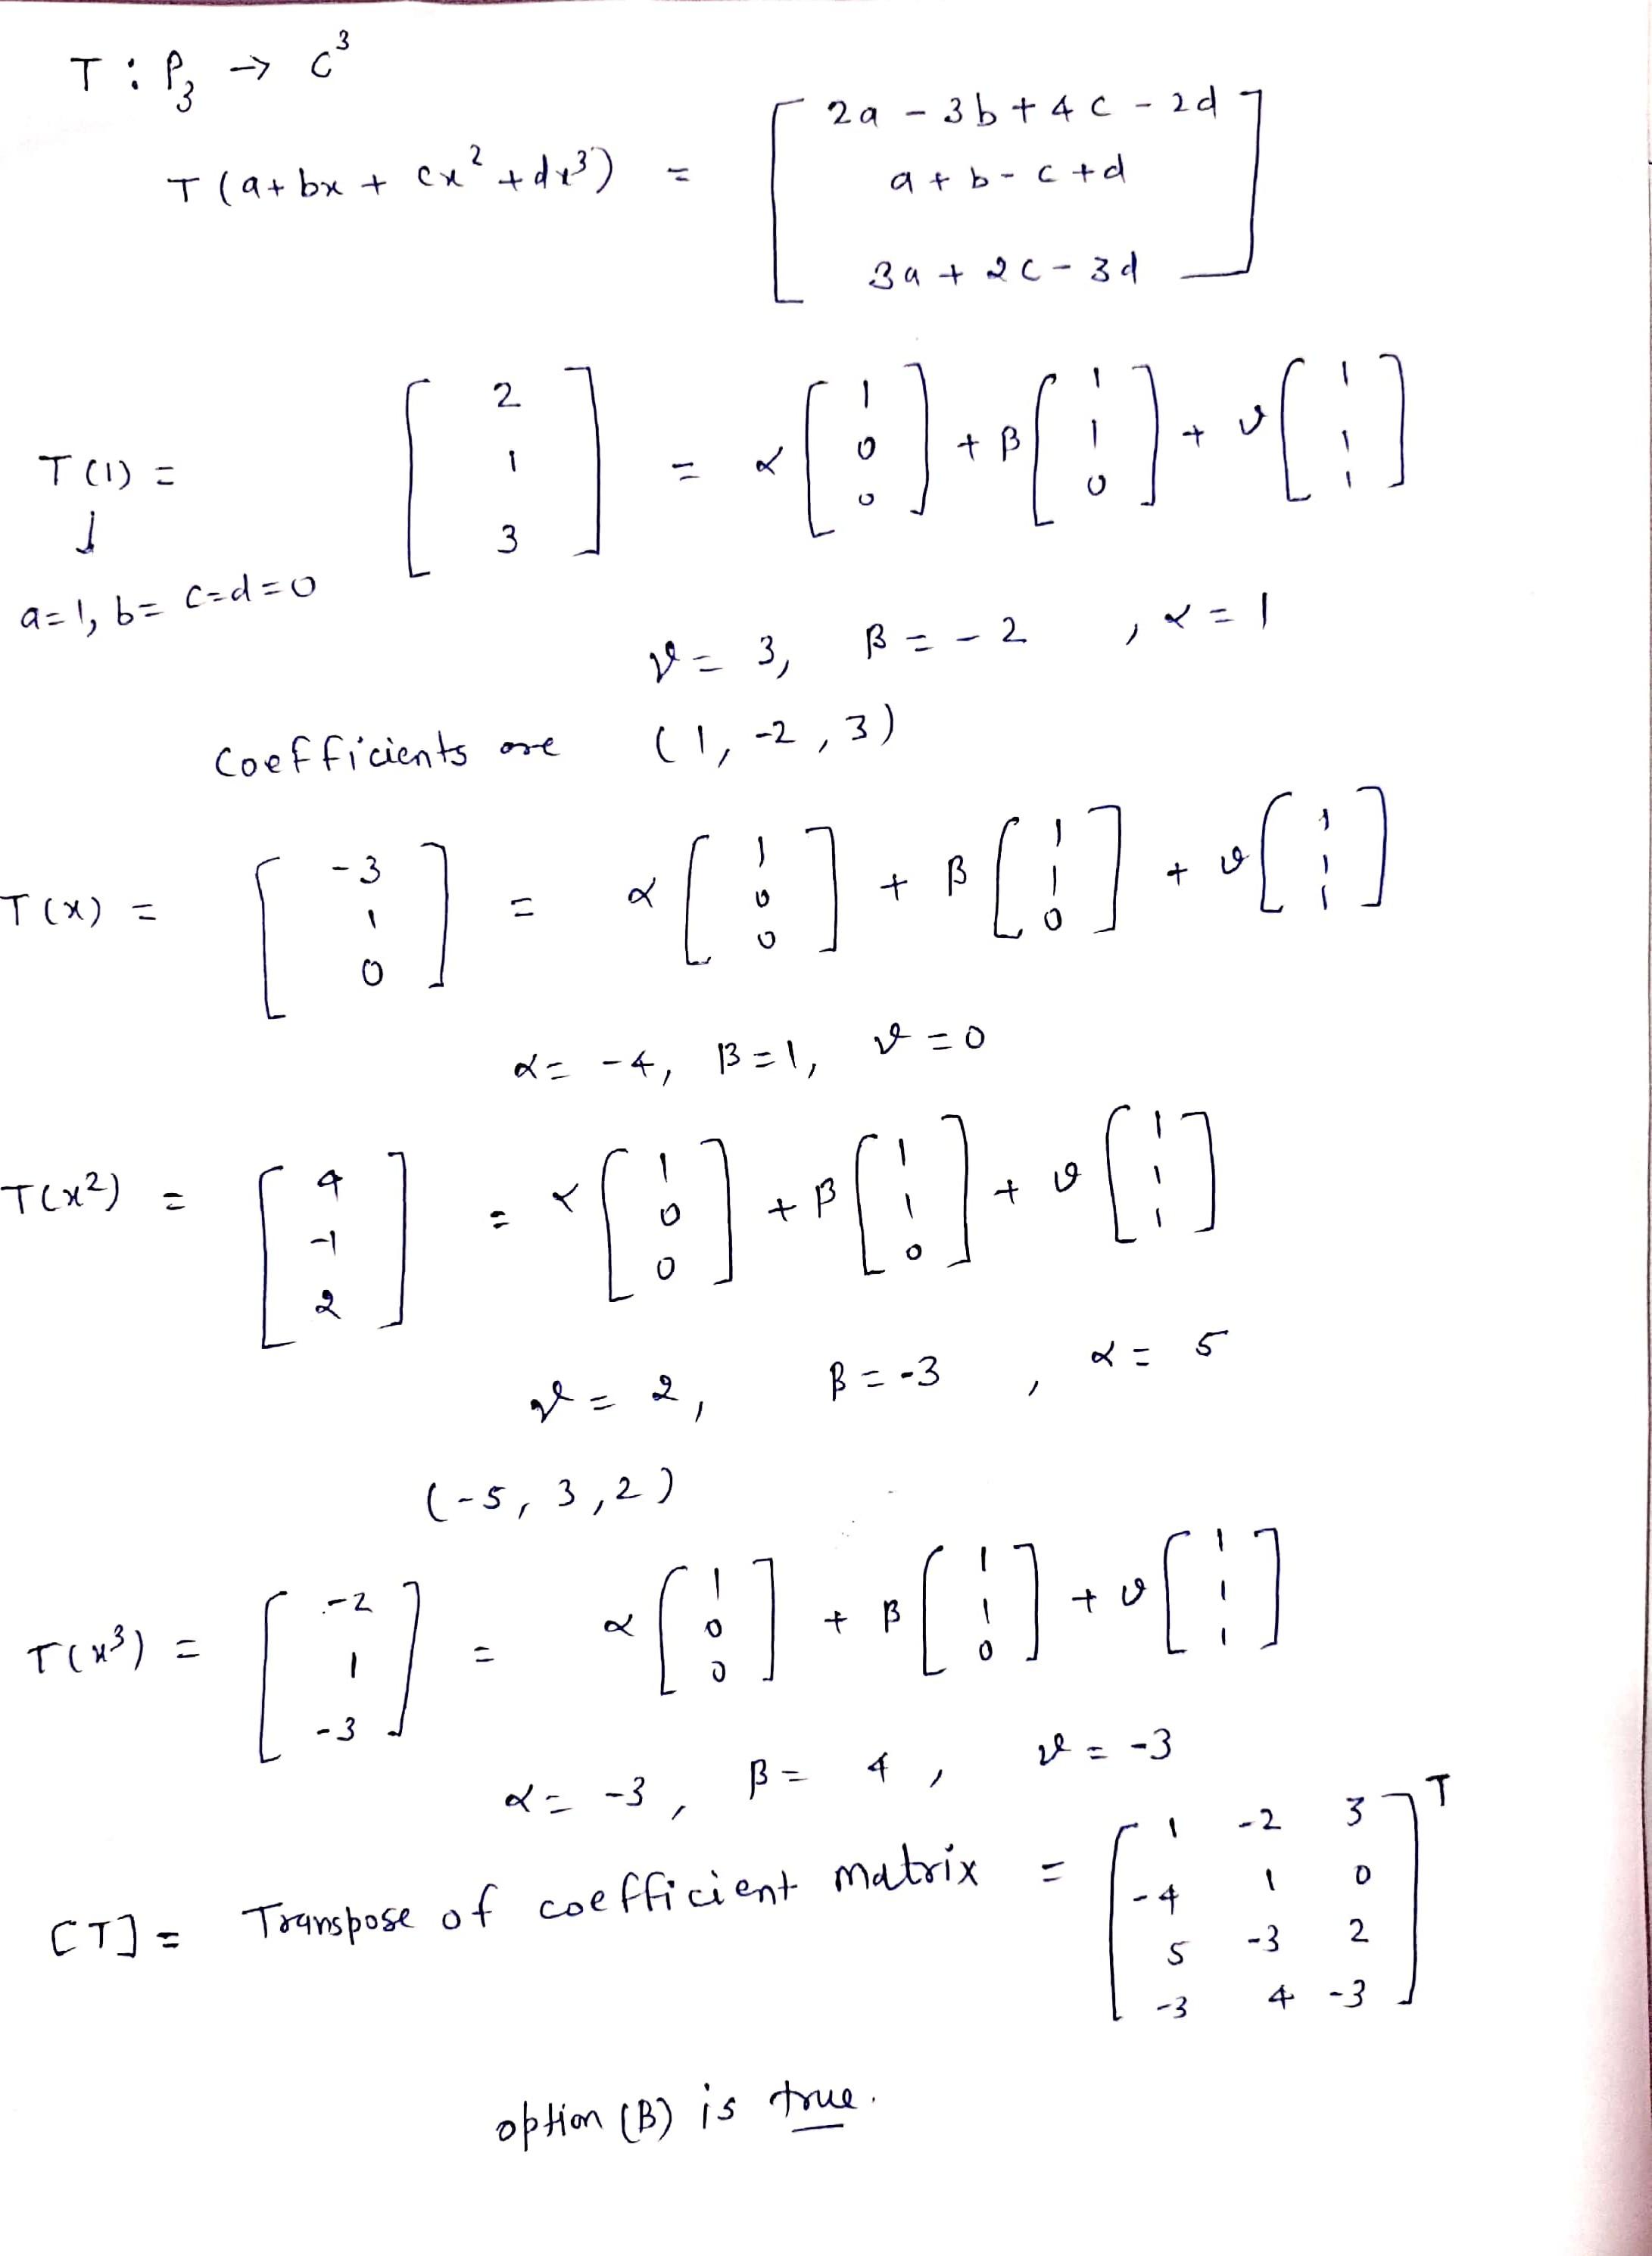 T : P₃ → C³
T(a+bx + cx² + dx³) = [ 2a - 3b + 4c - 2d
a + b - c + d
3a + 2c - 3d ]
T(1) = [ 2 1 3 ] = α [ 1 0 0 ] + β [ 1 1 0 ] + ϑ [ 1 1 1 ]
↓
a=1, b= c=d=0
ϑ = 3, β = -2 , α = 1
Coefficients are (1, -2, 3)
T(x) = [ -3 1 0 ] = α [ 1 0 0 ] + β [ 1 1 0 ] + ϑ [ 1 1 1 ]
α = -4, β=1, ϑ=0
T(x²) = [ 4 -1 2 ] = α [ 1 0 0 ] + β [ 1 1 0 ] + ϑ [ 1 1 1 ]
ϑ = 2, β = -3 , α = 5
(-5, 3, 2)
T(x³) = [ -2 1 -3 ] = α [ 1 0 0 ] + β [ 1 1 0 ] + ϑ [ 1 1 1 ]
α = -3 , β = 4 , ϑ = -3
[T] = Transpose of coefficient matrix = [ 1 -2 3
-4 1 0
5 -3 2
-3 4 -3 ]ᵀ
option (B) is true.